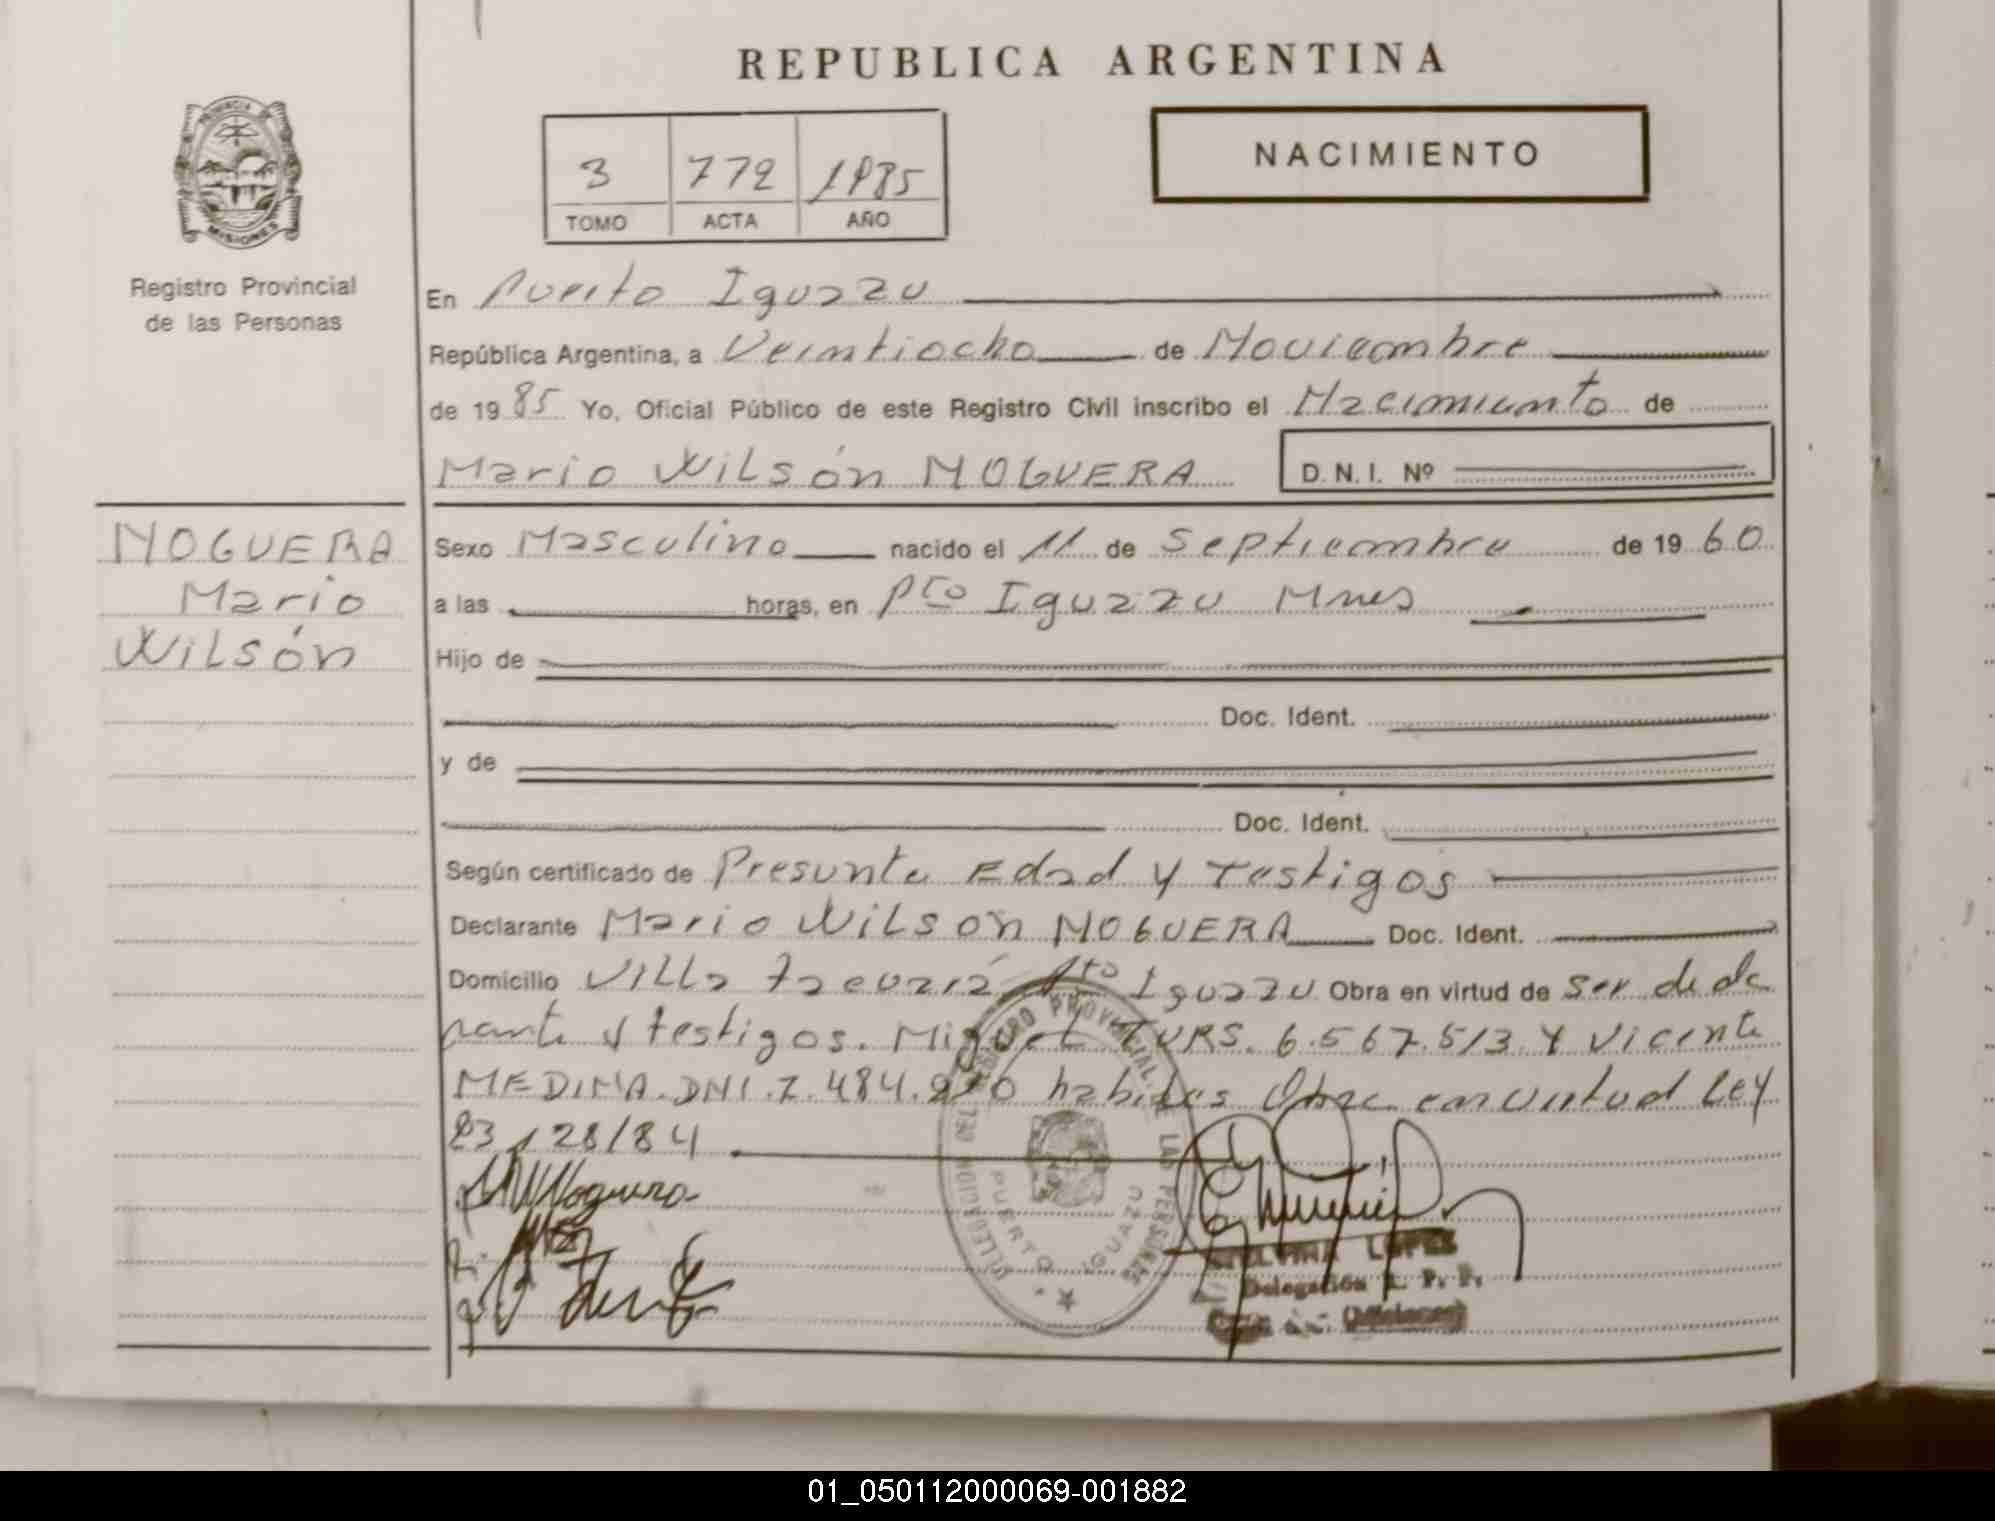 REPUBLICA ARGENTINA
PROVINCIA
MISIONES
Registro Provincial
de las Personas
3 772 1985
TOMO ACTA AÑO
NACIMIENTO
En Puerto Iguazu
República Argentina, a Veintiocho de Noviembre
de 19 85 Yo, Oficial Público de este Registro Civil inscribo el Nacimiento de
Mario Wilsón NOGUERA D.N.I. Nº
NOGUERA
Mario
Wilsón
Sexo Masculino nacido el 11 de Septiembre de 19 60
a las horas, en Pto Iguazu Mnes
Hijo de
Doc. Ident.
y de
Doc. Ident.
Según certificado de Presunta Edad y Testigos
Declarante Mario Wilsón NOGUERA Doc. Ident.
Domicilio Villa Pto Iguazu Obra en virtud de ser decla
rante y testigos. Miguel 6.567.513 Y Vicente
MEDINA. DNI. 7.484. habiles Obra en virtud Ley
23.128/84
MWNoguera
DELEGACION DEL REGISTRO PROVINCIAL DE LAS PERSONAS
PUERTO IGUAZU
LOPEZ
Delegación R. P. P.
(Misiones)
01_050112000069-001882